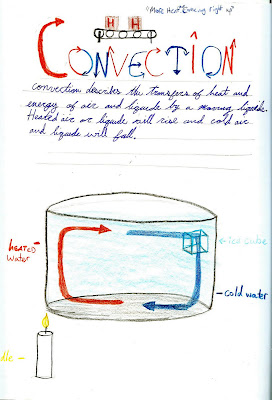 "More Heat coming right up"
H H
CONVECTION
convection describes the transfers of heat and
energy of air and liquids by a moving liquids.
Heated air or liquids will rise and cold air
and liquids will fall.
Ice cube
HEATED
water
cold water
dle